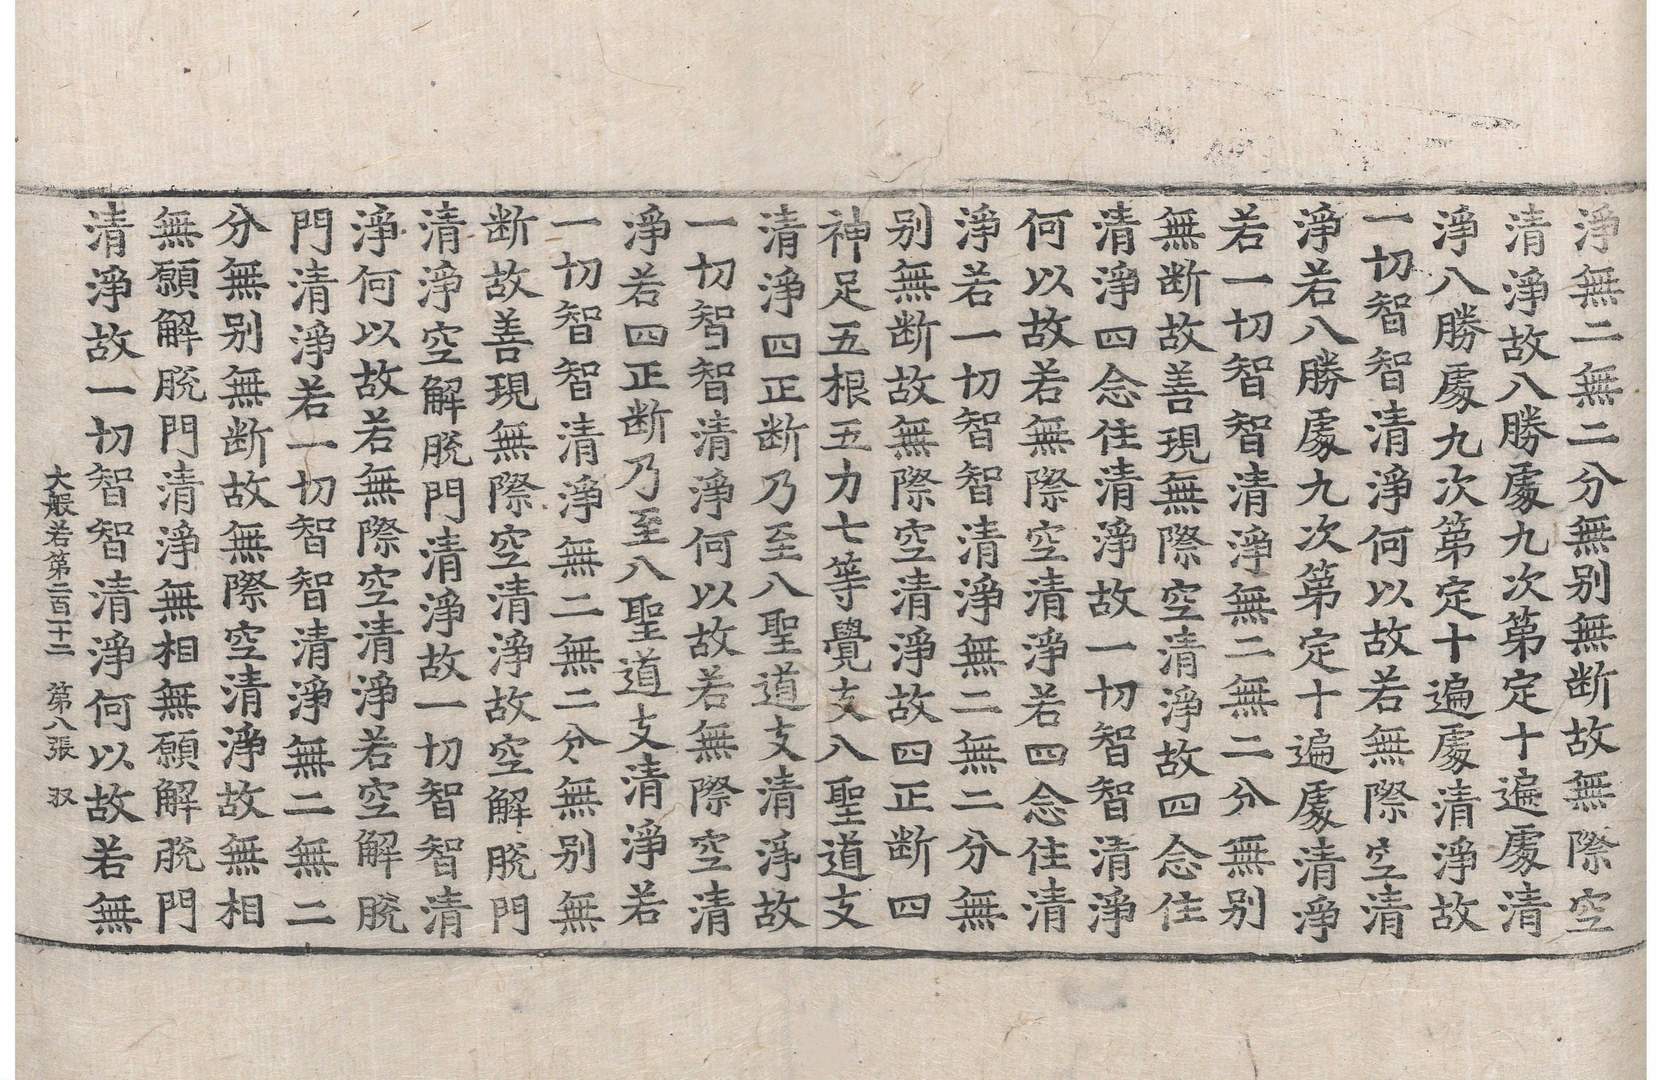 淨無二無二分無别無断故無際空
清淨故八勝處九次第定十遍處清
淨八勝處九次第定十遍處清淨故
一切智智清淨何以故若無際空清
淨若八勝處九次第定十遍處清淨
若一切智智清淨無二無二分無别
無断故善現無際空清淨故四念住
清淨四念住清淨故一切智智清淨
何以故若無際空清淨若四念住清
淨若一切智智清淨無二無二分無
别無断故無際空清淨故四正断四
神足五根五力七等覺支八聖道支
清淨四正断乃至八聖道支清淨故
一切智智清淨何以故若無際空清
淨若四正断乃至八聖道支清淨若
一切智智清淨無二無二分無别無
断故善現無際空清淨故空解脫門
清淨空解脫門清淨故一切智智清
淨何以故若無際空清淨若空解脫
門清淨若一切智智清淨無二無二
分無别無断故無際空清淨故無相
無願解脫門清淨無相無願解脫門
清淨故一切智智清淨何以故若無
大般若第二百二十二 第八張 双